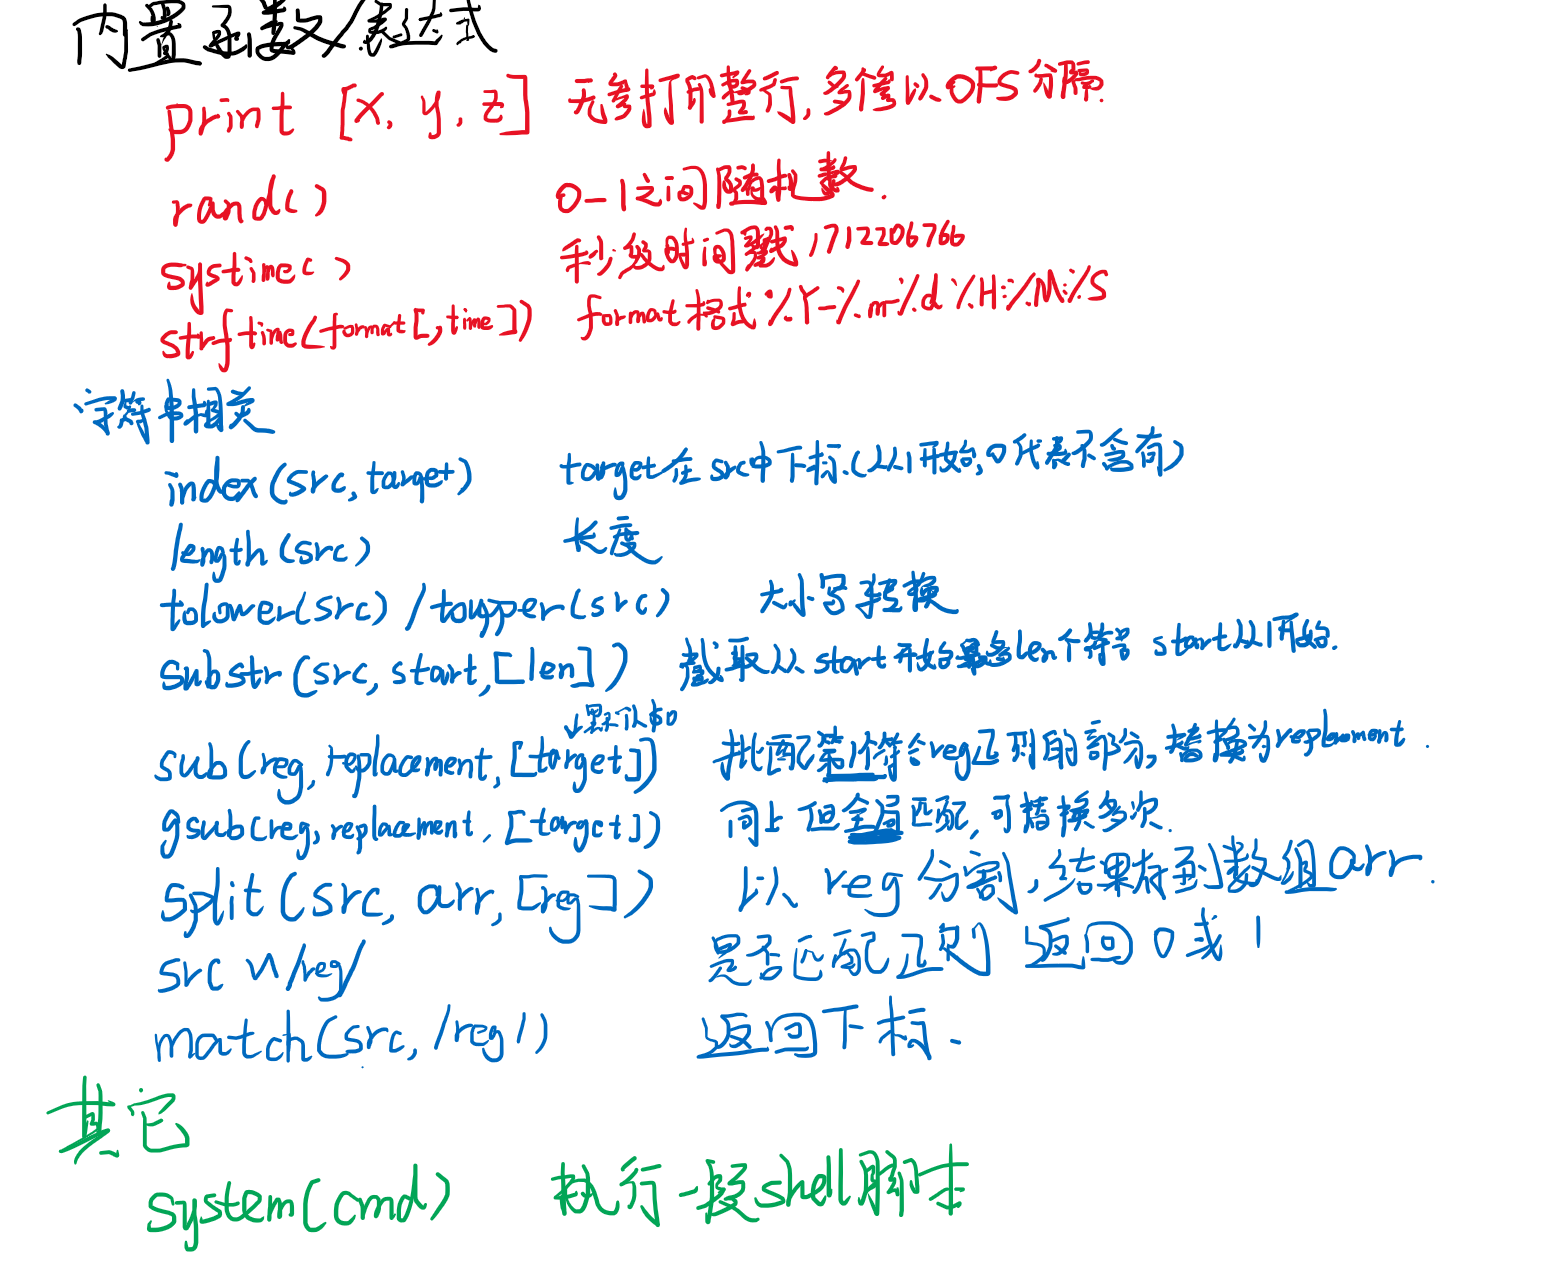 内置函数/表达式
print [x, y, z] 无参打印整行,多参以OFS分隔.
rand() 0-1之间随机数.
systime() 秒级时间戳 1712206766
strftime(format[,time]) format格式 %Y-%m-%d %H:%M:%S
字符串相关
index(src, target) target在src中下标.(从1开始,0代表不含有)
length(src) 长度
tolower(src) / toupper(src) 大小写转换
substr(src, start,[len]) 截取从start开始最多len个符号 start从1开始.
↓默认$0
sub(reg, replacement, [target]) 批配第1个符合reg正则的部分,替换为replacement.
gsub(reg, replacement, [target]) 同上但全局匹配,可替换多次.
split(src, arr, [reg]) 以reg分割,结果存到数组arr.
src ~ /reg/ 是否匹配正则 返回0或1
match(src, /reg/) 返回下标.
其它
system(cmd) 执行一段shell脚本